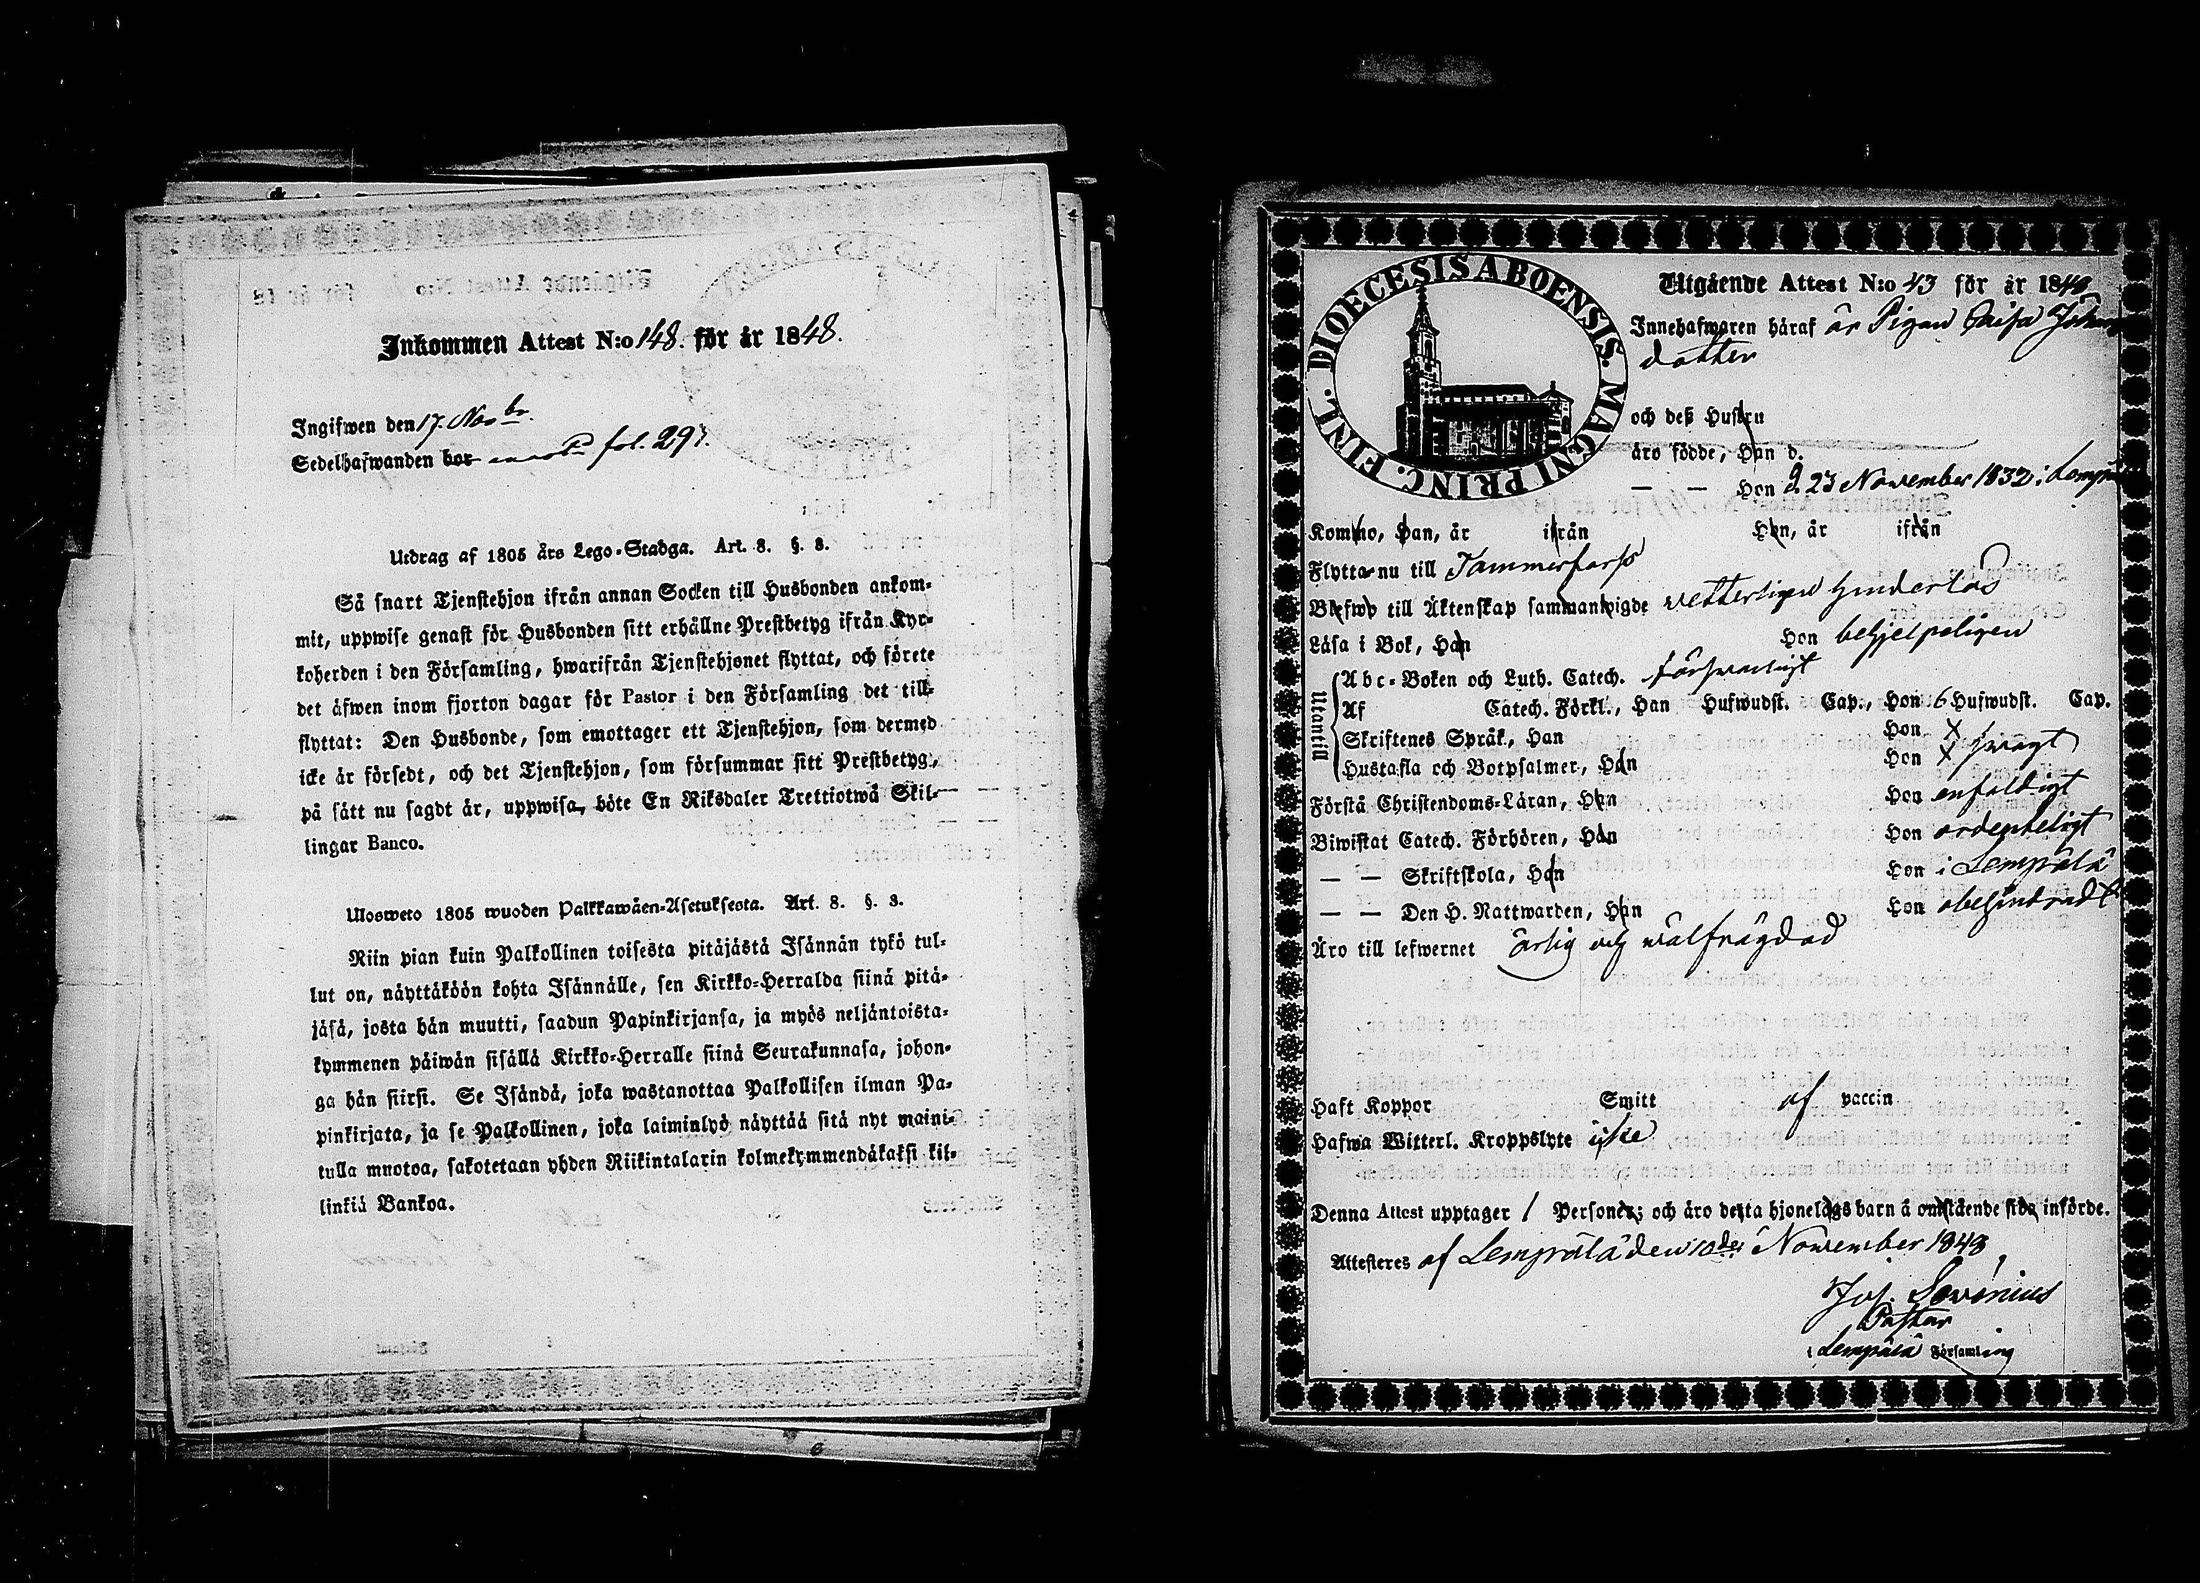 Inkommen Attest N:o 148. för år 1848.
Ingifwen den 17. Novbr.
Sedelhafwanden bor fol. 297.
Utdrag af 1805 års Lego-Stadga. Art. 8. §. 8.
Så snart Tjenstehjon ifrån annan Socken till Husbonden ankom-
mit, uppwise genast för Husbonden sitt erhållne Prestbetyg ifrån Kyr-
koherden i den Församling, hwarifrån Tjenstehjonet flyttat, och förete
det äfwen inom fjorton dagar för Pastor i den Församling det till-
flyttat: Den Husbonde, som emottager ett Tjenstehjon, som dermed
icke är försedt, och det Tjenstehjon, som försummar sitt Prestbetyg,
på sätt nu sagdt är, uppwisa, böte En Riksdaler Trettiotwå Skil-
lingar Banco.
Ulosweto 1805 wuoden Palkkawäen-Asetuksesta. Art. 8. §. 8.
Niin pian kuin Palkollinen toisesta pitäjästä Isännän tykö tul-
lut on, näyttäköön kohta Isännälle, sen Kirkko-Herralda siinä pitä-
jäsä, josta hän muutti, saadun Papinkirjansa, ja myös neljäntoista-
kymmenen päiwän sisällä Kirkko-Herralle siinä Seurakunnasa, johon-
ga hän siirsi. Se Isändä, joka wastanottaa Palkollisen ilman Pa-
pinkirjata, ja se Palkollinen, joka laiminlyö näyttää sitä nyt maini-
tulla muotoa, sakotetaan yhden Riikintalarin kolmekymmendäkaksi kil-
linkiä Bankoa.
DIOECESIS ABOENSIS. MAGNI PRINC. FINL.
Utgående Attest N:o 43 för år 1848
Innehafwaren häraf är Pigan Caisa Johans
dotter
och deß Hustru
äro födde, Han d.
— — Hon d. 23 November 1832 i Lempälä
Kommo, Han, år ifrån Hon, år ifrån
Flytta nu till Tammerfors
Blefwo till Äktenskap sammanwigde vetterligen hinderlös
Läsa i Bok, Han Hon behjelpeligen
Utantill
Abc-Boken och Luth. Catech. försvarligt
Af Catech. Förkl., Han Hufwudst. Cap., Hon 6 Hufwudst. Cap.
Skriftenes Språk, Han Hon X
Hustafla och Botpsalmer, Han Hon X svagt
Förstå Christendoms-Läran, Han Hon enfaldigt
Biwistat Catech. Förhören, Han Hon ordenteligt
— — Skriftskola, Han Hon i Lempälä
— — Den H. Nattwarden, Han Hon obehindradt
Äro till lefwernet ärlig och wälfrägdad
Haft Koppor Smitt af vaccin
Hafwa Witterl. Kroppslyte icke
Denna Attest upptager 1 Personer; och äro detta hjonelags barn å omstående sida införde.
Attesteres af Lempälä den 10de November 1848
Joh. Sevonius
Pastor
i Lempälä Församling